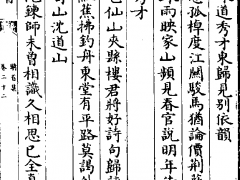 道秀才東歸見別依韻
孤棹度江關駿馬猶論價荆
雨映家山頻見春官說明年
秀才
仙山夾縣樓君將好詩句歸
蕉拂釣舟東堂有平路莫謁
山沈道山
鍊師未曾相識久相思已
卷二十二